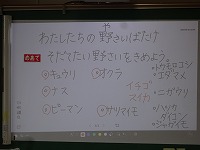 わたしたちの野さいばたけ
や
めあて
そだてたい野さいをきめよう。
キュウリ
オクラ
トウモロコシ
エダマメ
ナス
イチゴ
スイカ
ニガウリ
ピーマン
サツマイモ
ハツカ
ダイコン
ジャガイモ